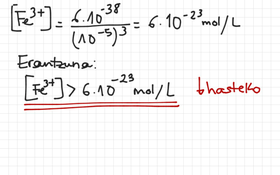 [Fe³⁺] = 6.10⁻³⁸ / (10⁻⁵)³ = 6.10⁻²³ mol/L
Erantzuna:
[Fe³⁺] > 6.10⁻²³ mol/L ↓ hasteko